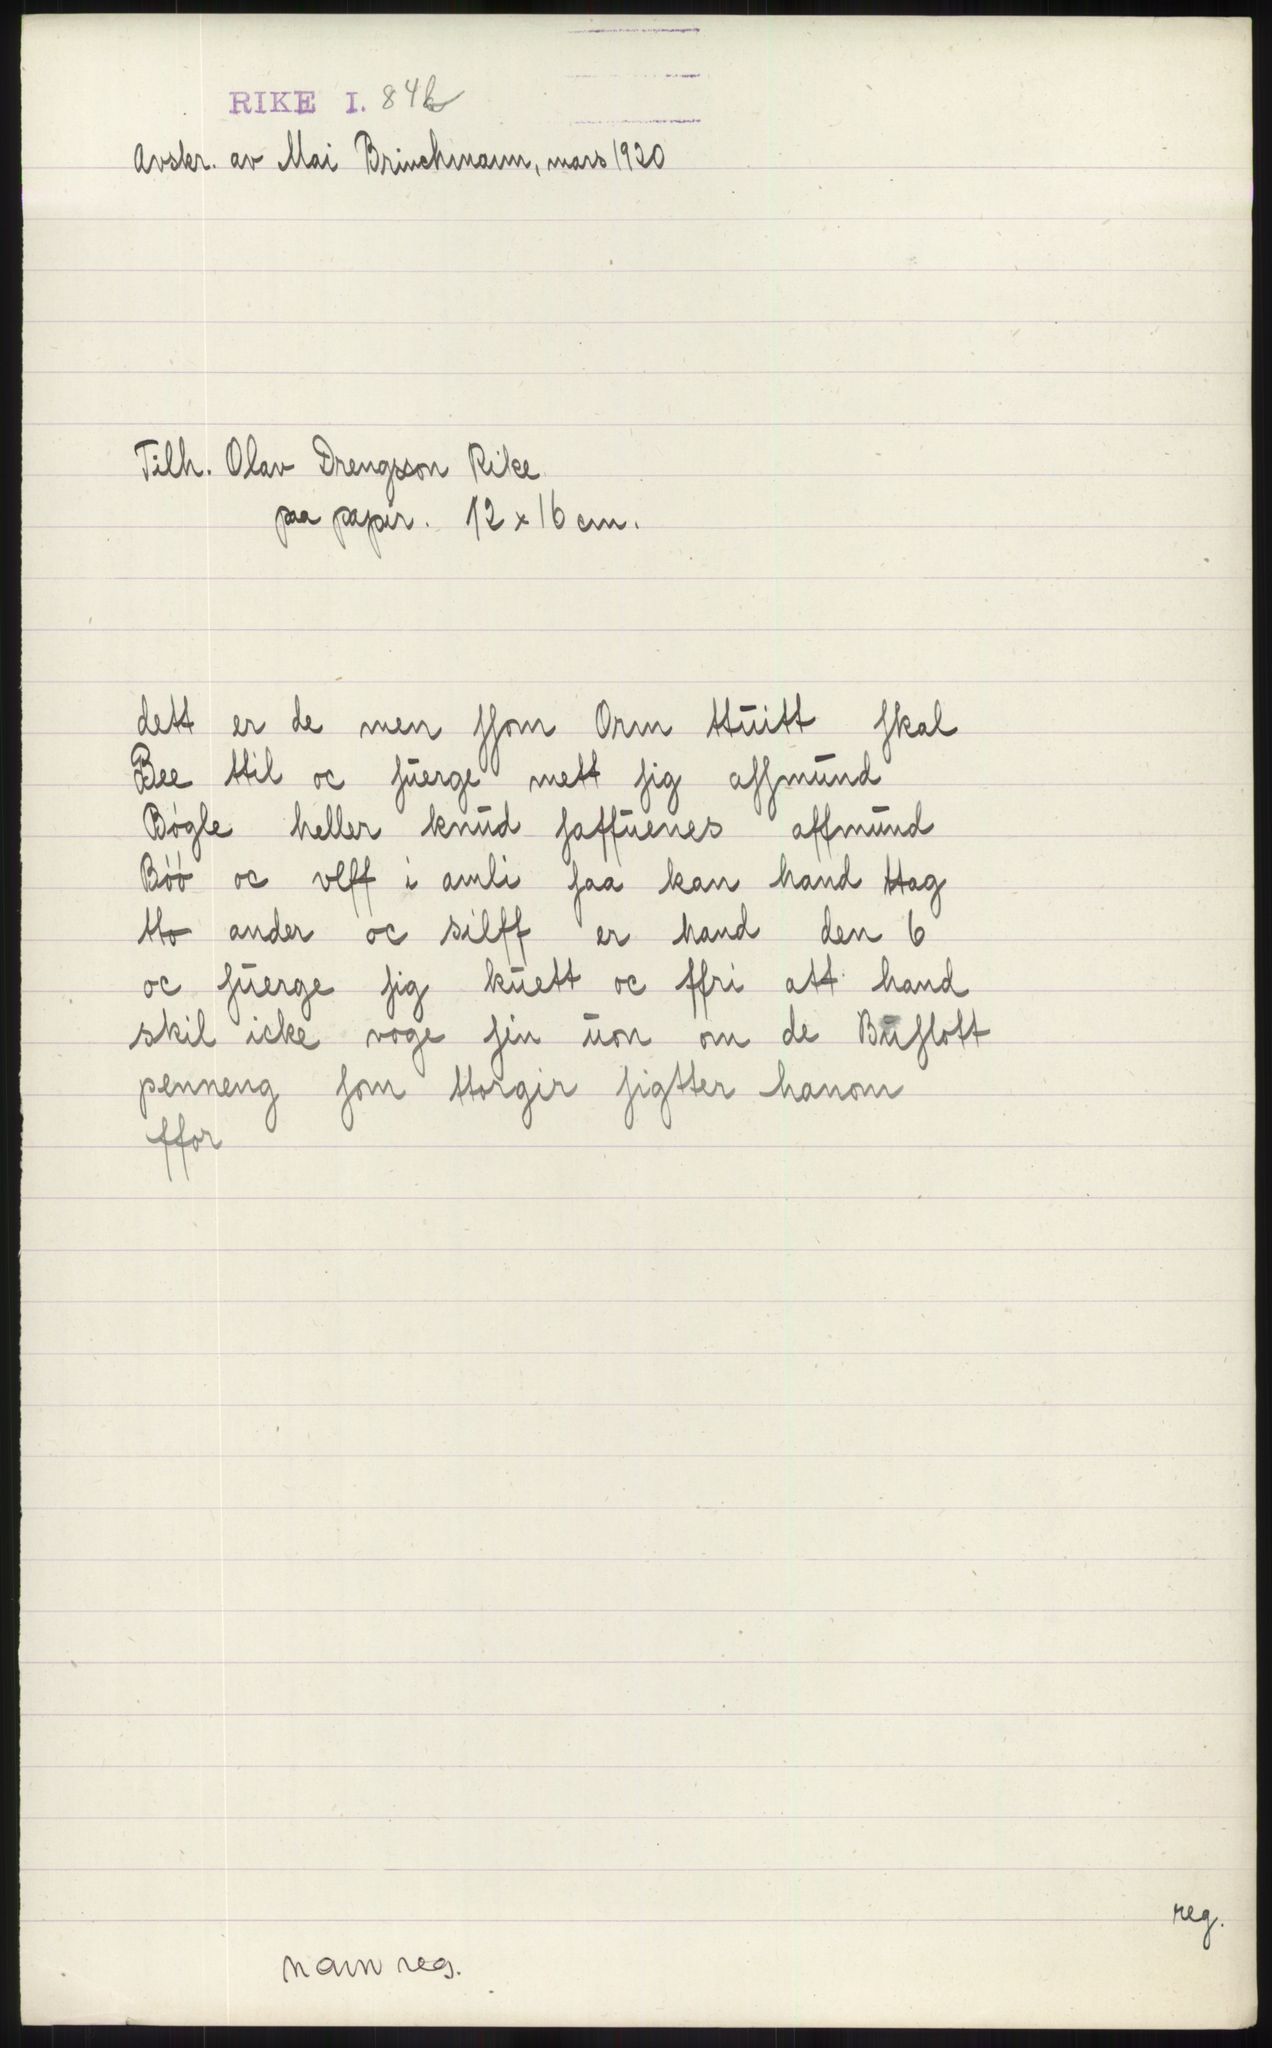 RIKE I. 84b
Avskr. av Mai Brinchmann, mars 1920
Tilh. Olav Drengsson Rike
paa papir. 12 x 16 cm.
dett er de men ſſom Orm ttūitt ſkal
Bee ttil oc ſūerge mett ſig aſſmūnd
Bögle heller knūd ſaffūenes aſſmūnd
Böö oc vlff i amli ſaa kan hand ttag
tto ander oc silff er hand den 6
oc ſūerge ſig kūett oc ffri att hand
skil icke voge ſin ūon om de Būſlott
penneng ſom ttorgir ſigtter hanom
ffor
reg.
namnreg.